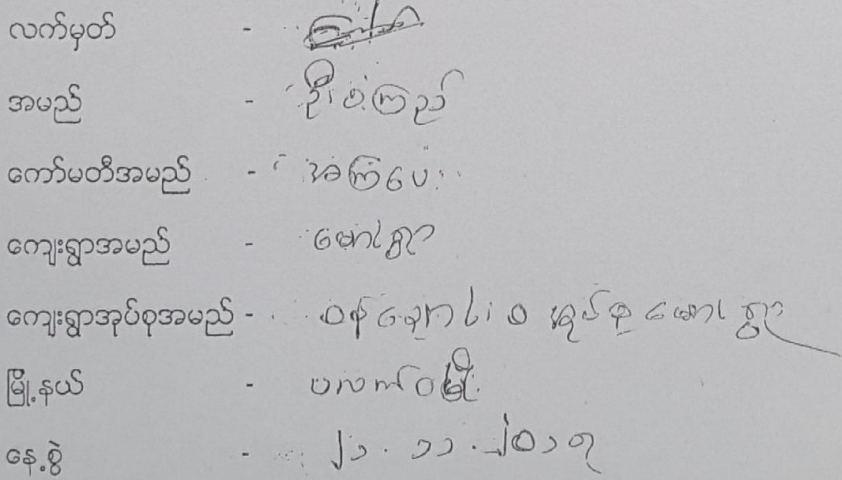 လက်မှတ် -
အမည် - ဦးစံကြည်
ကော်မတီအမည် - အကြံပေး
ကျေးရွာအမည် - မောင်ရွာ
ကျေးရွာအုပ်စုအမည် - အုပ်စု
မြို့နယ် - ပလက်ဝမြို့
နေ့စွဲ - ၂၁.၁၁.၂၀၁၇